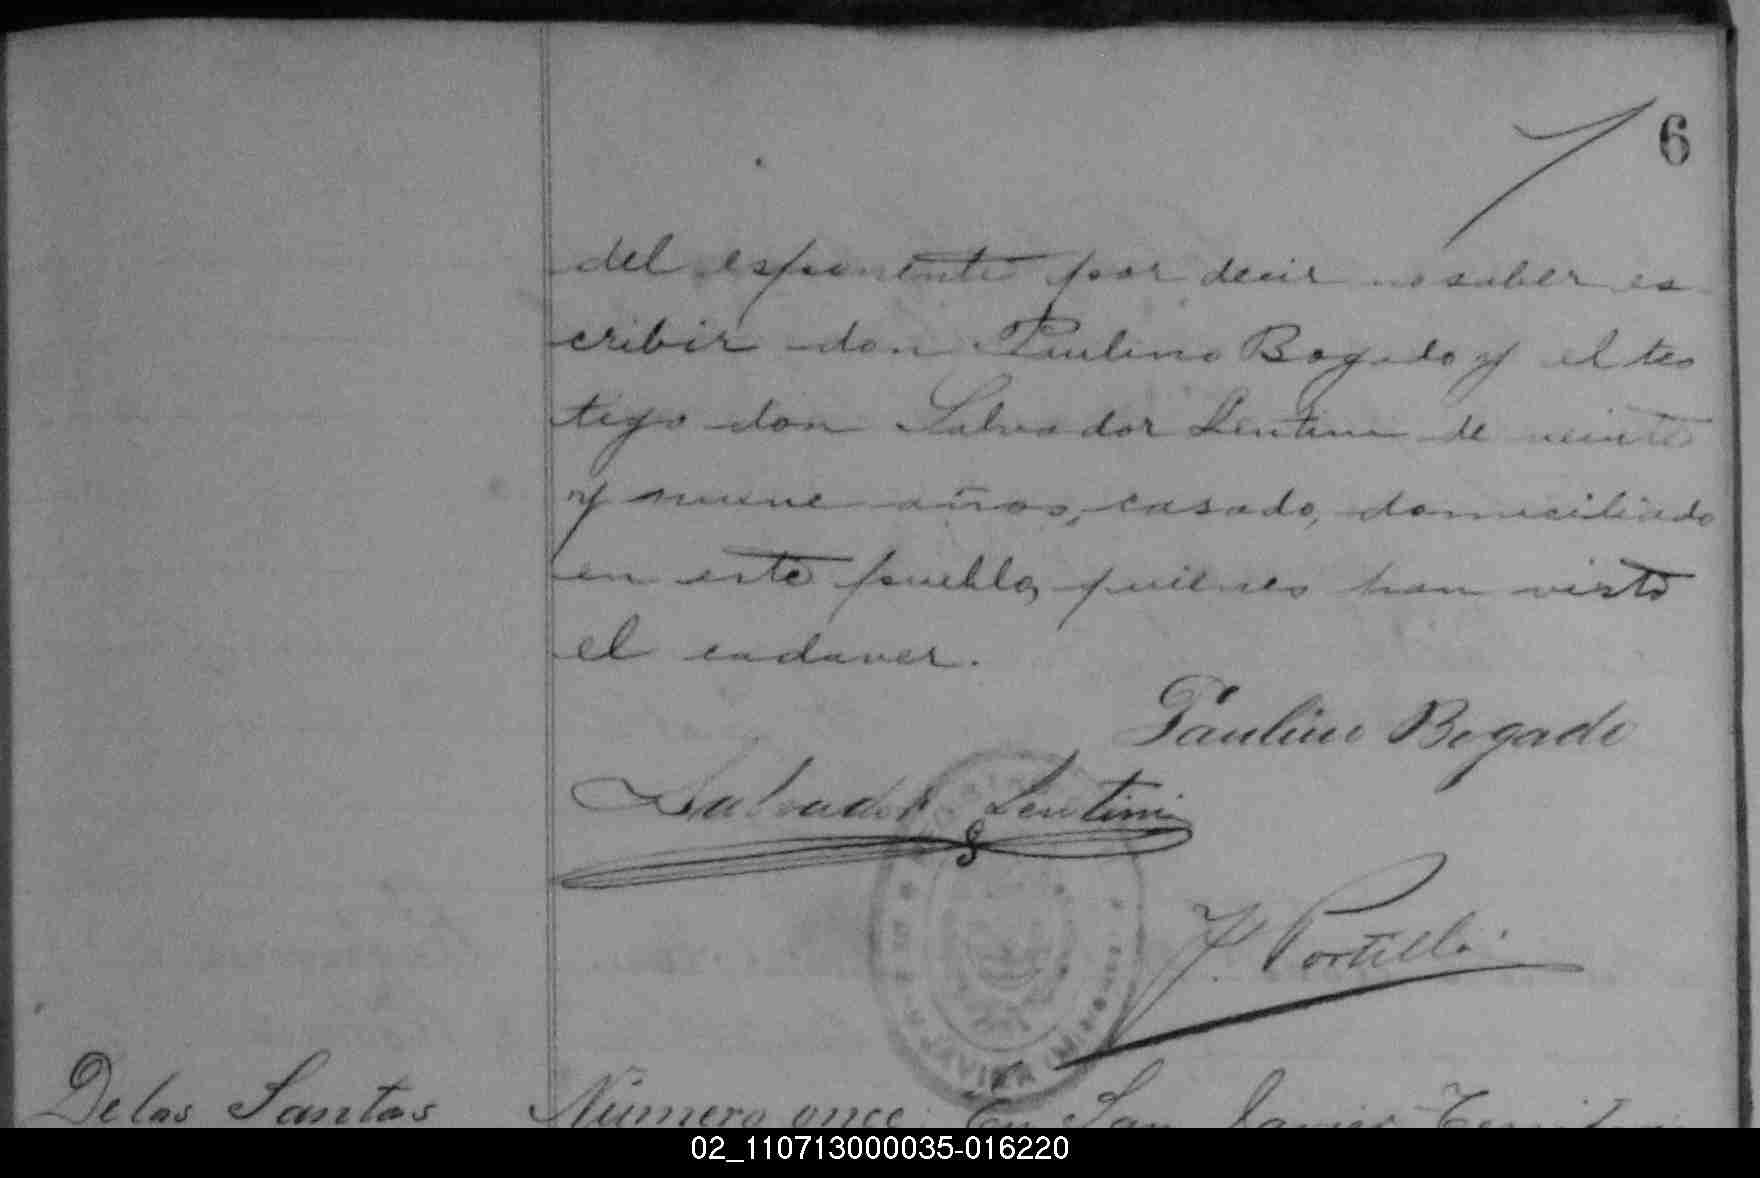 6
del esponente por decir no saber es
cribir don Paulino Bogado y el tes
tigo don Salvador Lentini de veinte
y nueve años, casado, domiciliado
en este pueblo, quienes han visto
el cadaver.
Paulino Bogado
Salvador Lentini
J. Portillo
De los Santos
Número once. En San Javier Territorio
02_110713000035-016220